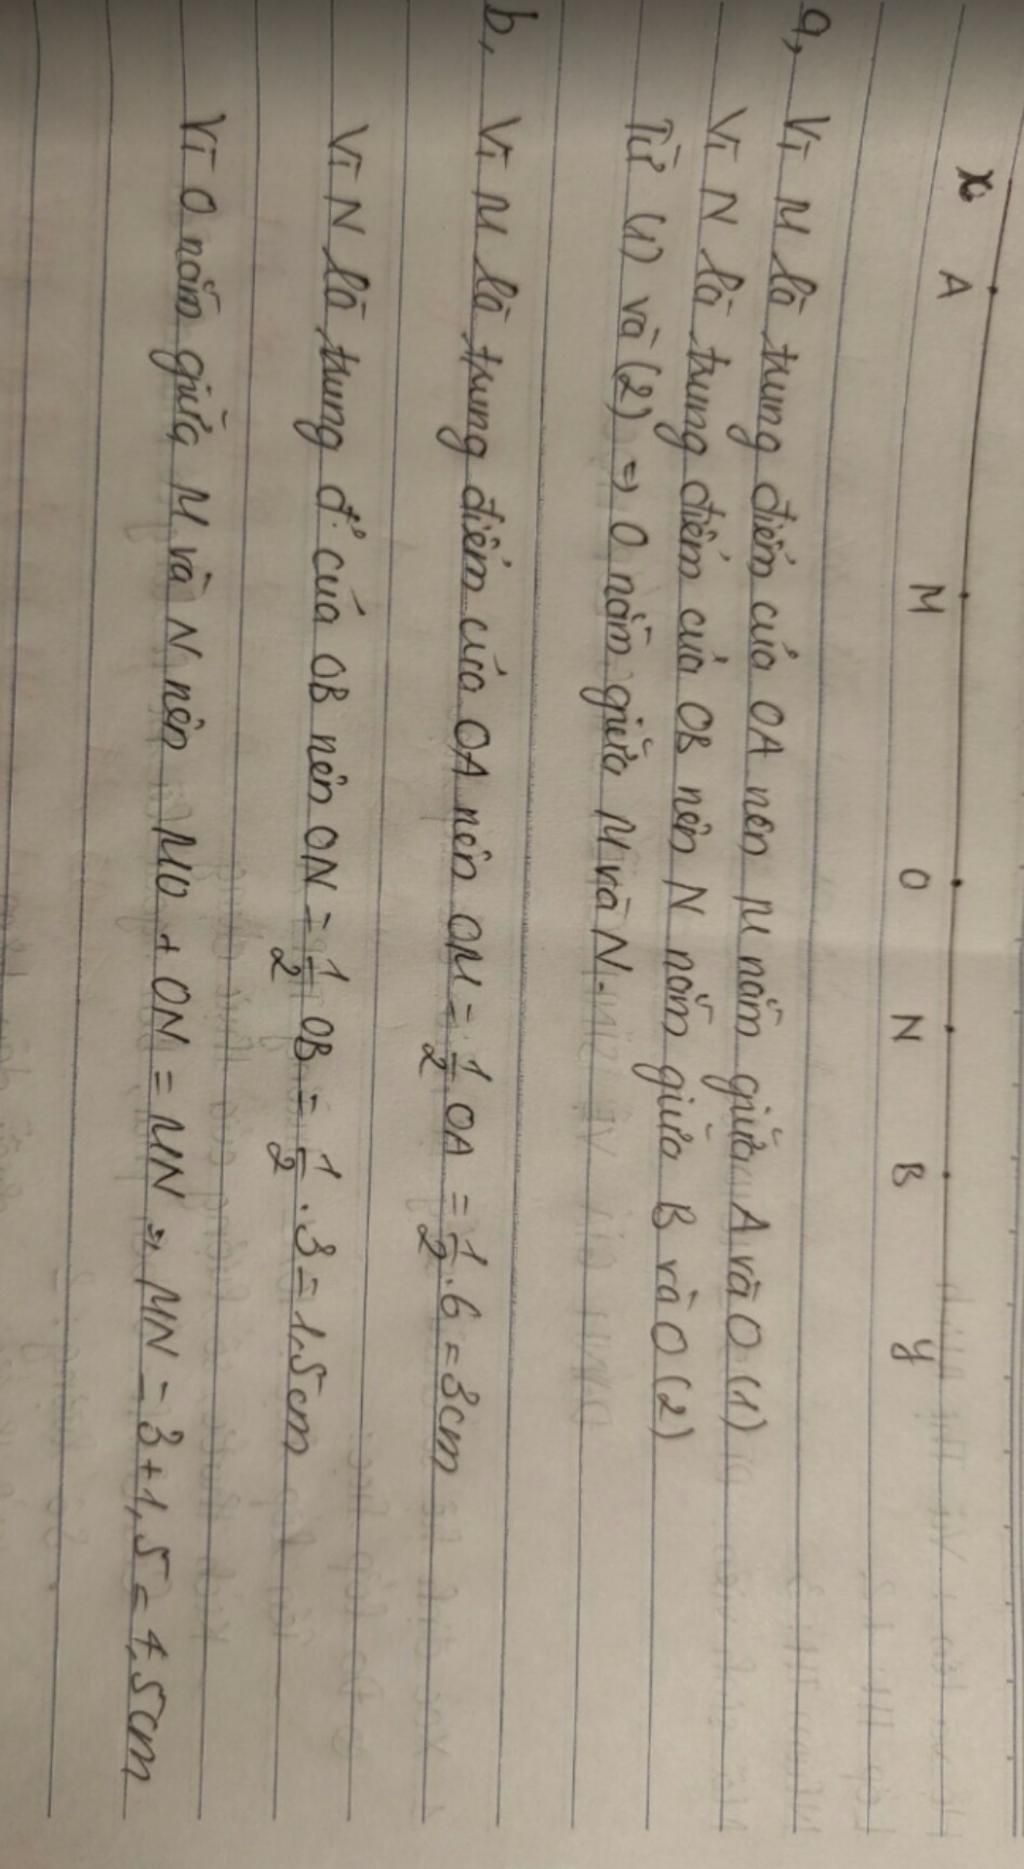 x A M O N B y
a, Vì M là trung điểm của OA nên M nằm giữa A và O (1)
Vì N là trung điểm của OB nên N nằm giữa B và O (2)
Từ (1) và (2) => O nằm giữa M và N.
b, Vì M là trung điểm của OA nên OM = 1/2 OA = 1/2 . 6 = 3cm
Vì N là trung đ' của OB nên ON = 1/2 OB = 1/2 . 3 = 1,5cm
Vì O nằm giữa M và N nên MO + ON = MN => MN = 3 + 1,5 = 4,5cm